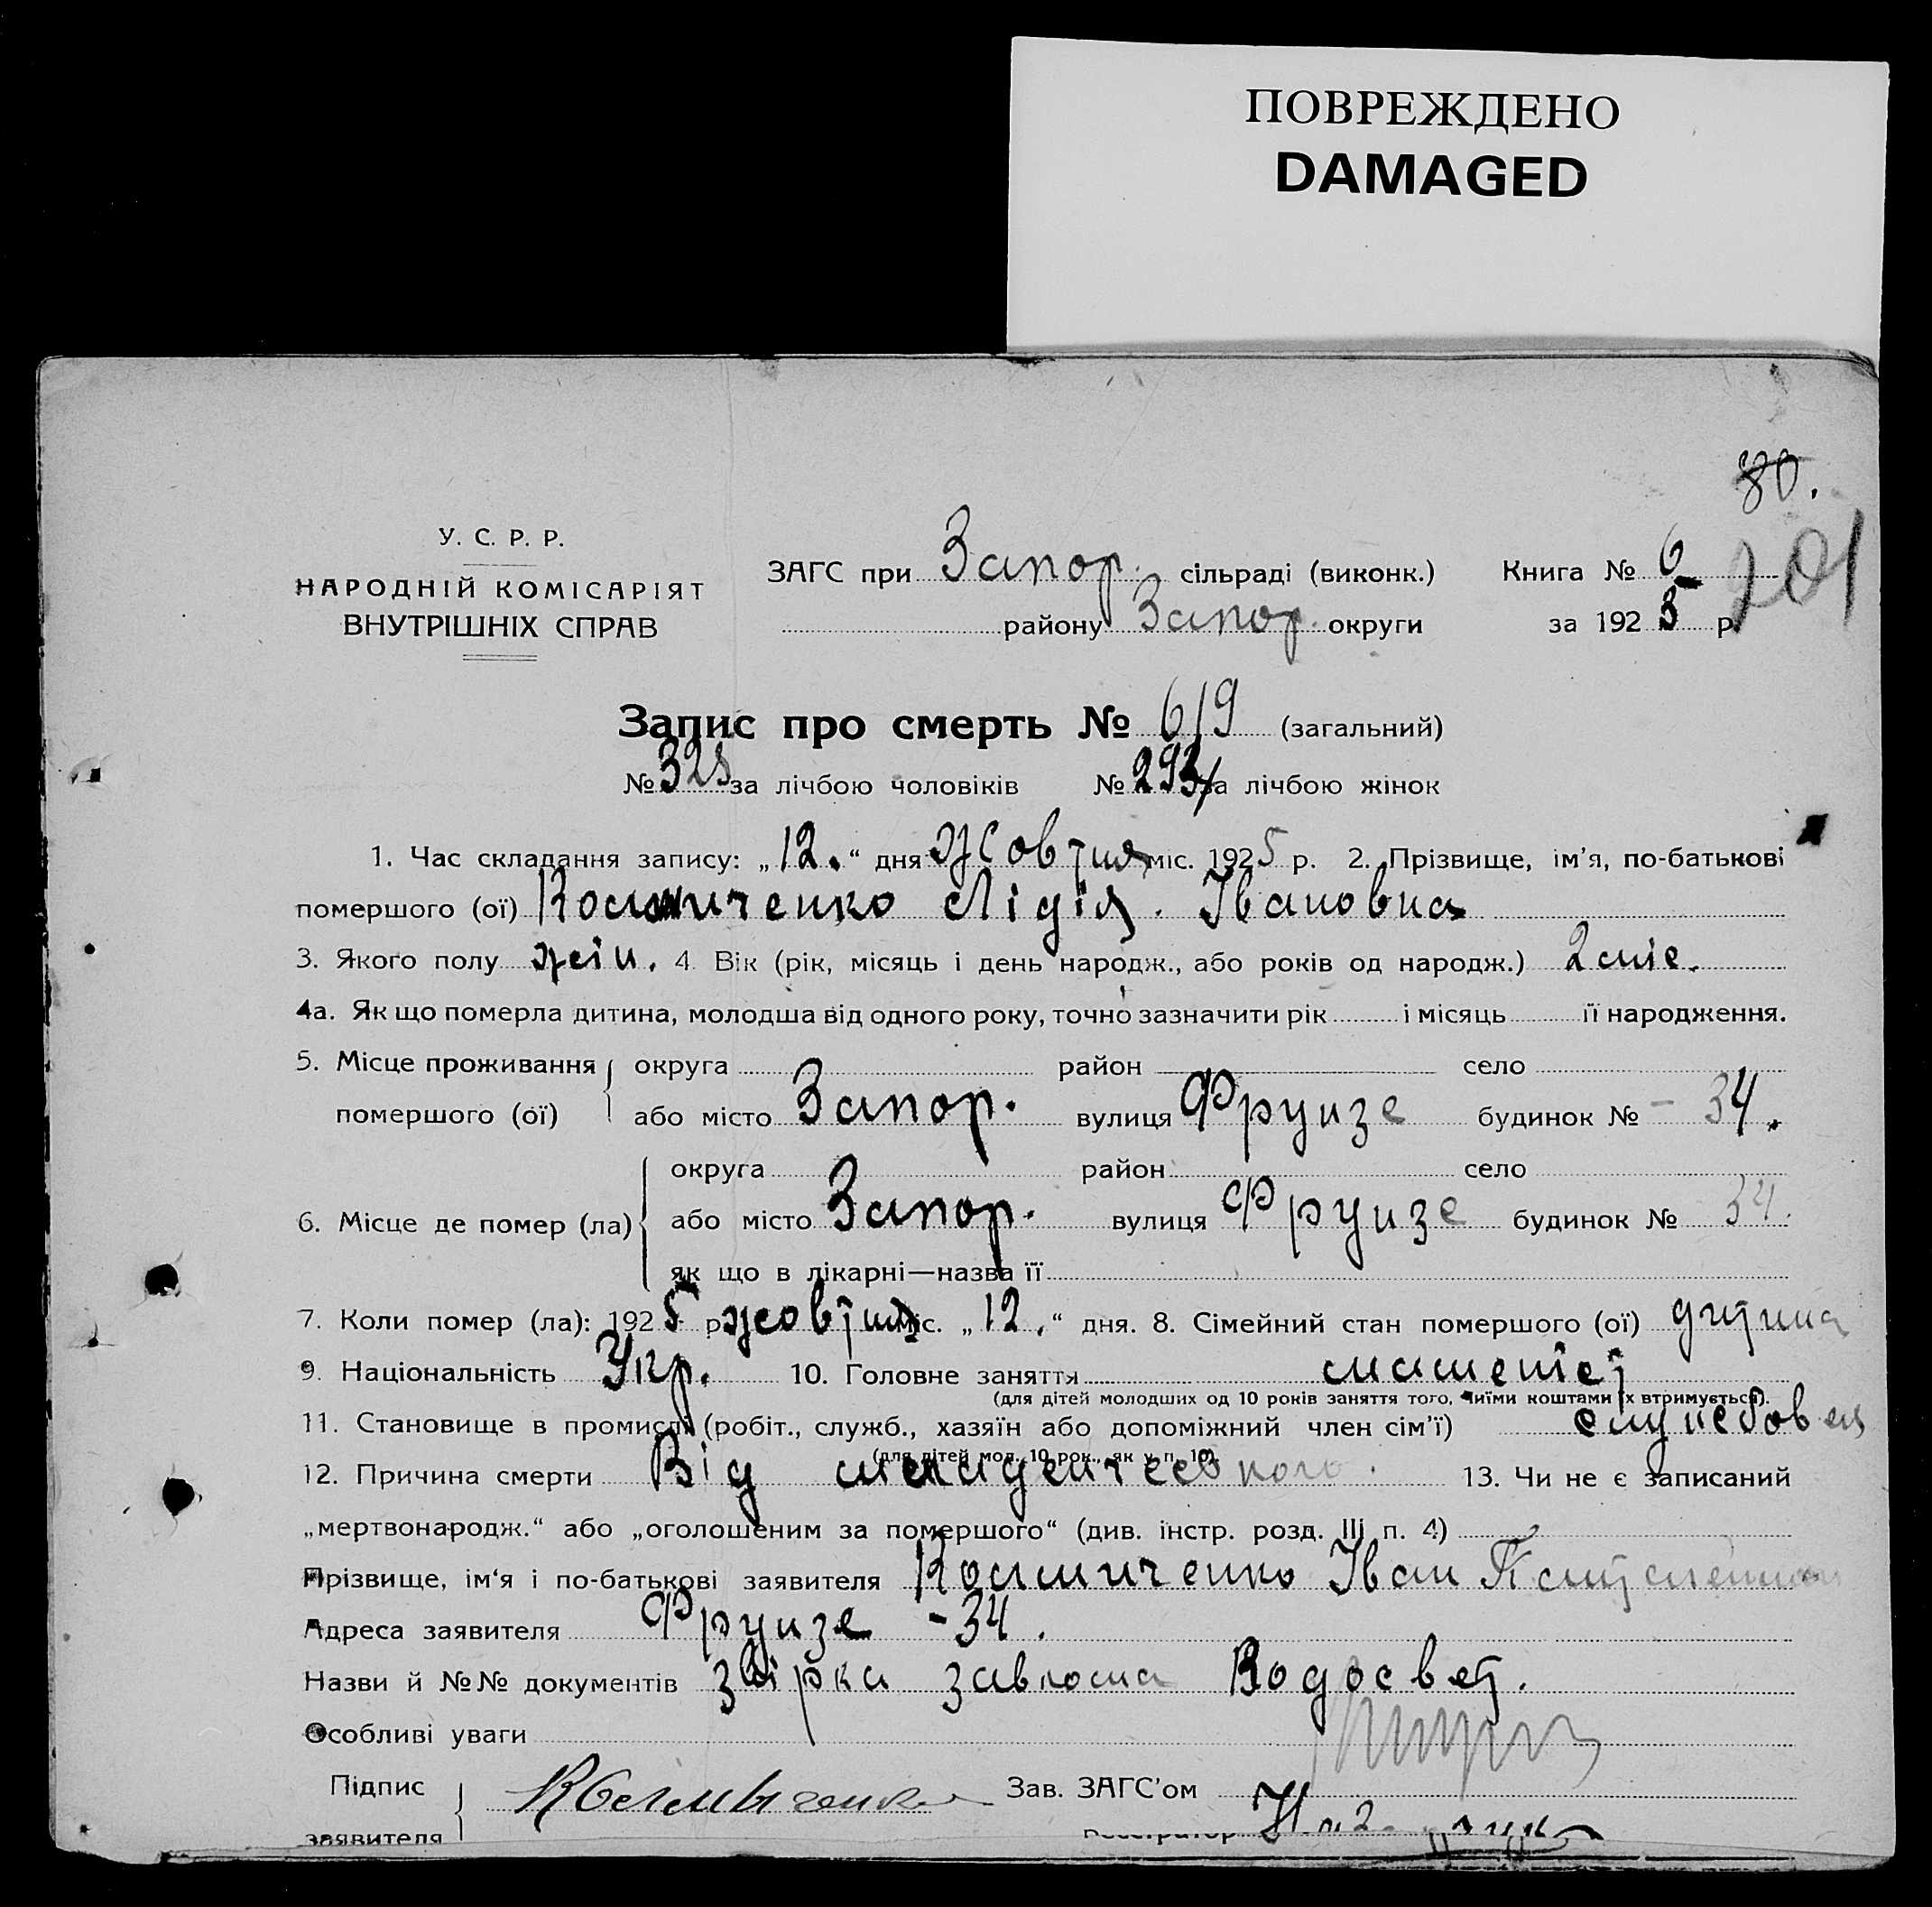 ПОВРЕЖДЕНО
DAMAGED
80.
201
У. С. Р. Р.
НАРОДНІЙ КОМІСАРІЯТ
ВНУТРІШНІХ СПРАВ
ЗАГС при Запор. сільраді (виконк.) Книга № 6
району Запор. округи за 1925 р.
Запис про смерть № 619 (загальний)
№ 325 за лічбою чоловіків № 294 за лічбою жінок
1. Час складання запису: „12.“ дня Жовтня міс. 1925 р. 2. Прізвище, ім'я, по-батькові
помершого (ої) Колмиченко Лідія. Івановна
3. Якого полу жін. 4 Вік (рік, місяць і день народж., або років од народж.) 2 міс.
4а. Як що померла дитина, молодша від одного року, точно зазначити рік і місяць її народження.
5. Місце проживання округа район село
помершого (ої) або місто Запор. вулиця Фрунзе будинок № – 34.
округа район село
6. Місце де помер (ла) або місто Запор. вулиця Фрунзе будинок № 34.
як що в лікарні—назва її
7. Коли помер (ла): 1925 р жовтня міс. „12.“ дня. 8. Сімейний стан помершого (ої) дитина
9. Національність Укр. 10. Головне заняття
(для дітей молодших од 10 років заняття того, чиїми коштами їх втримується).
11. Становище в промислі (робіт., служб., хазяїн або допоміжний член сім'ї) службовец
(для дітей мол. 10 рок., як у п. 10).
12. Причина смерти Від 13. Чи не є записаний
„мертвонародж.“ або „оголошеним за помершого“ (див. інстр. розд. III п. 4)
Прізвище, ім'я і по-батькові заявителя Колмиченко Іван
Адреса заявителя Фрунзе – 34.
Назви й №№ документів
Особливі уваги
Підпис Зав. ЗАГС'ом
заявителя Колмыченко
Реєстратор